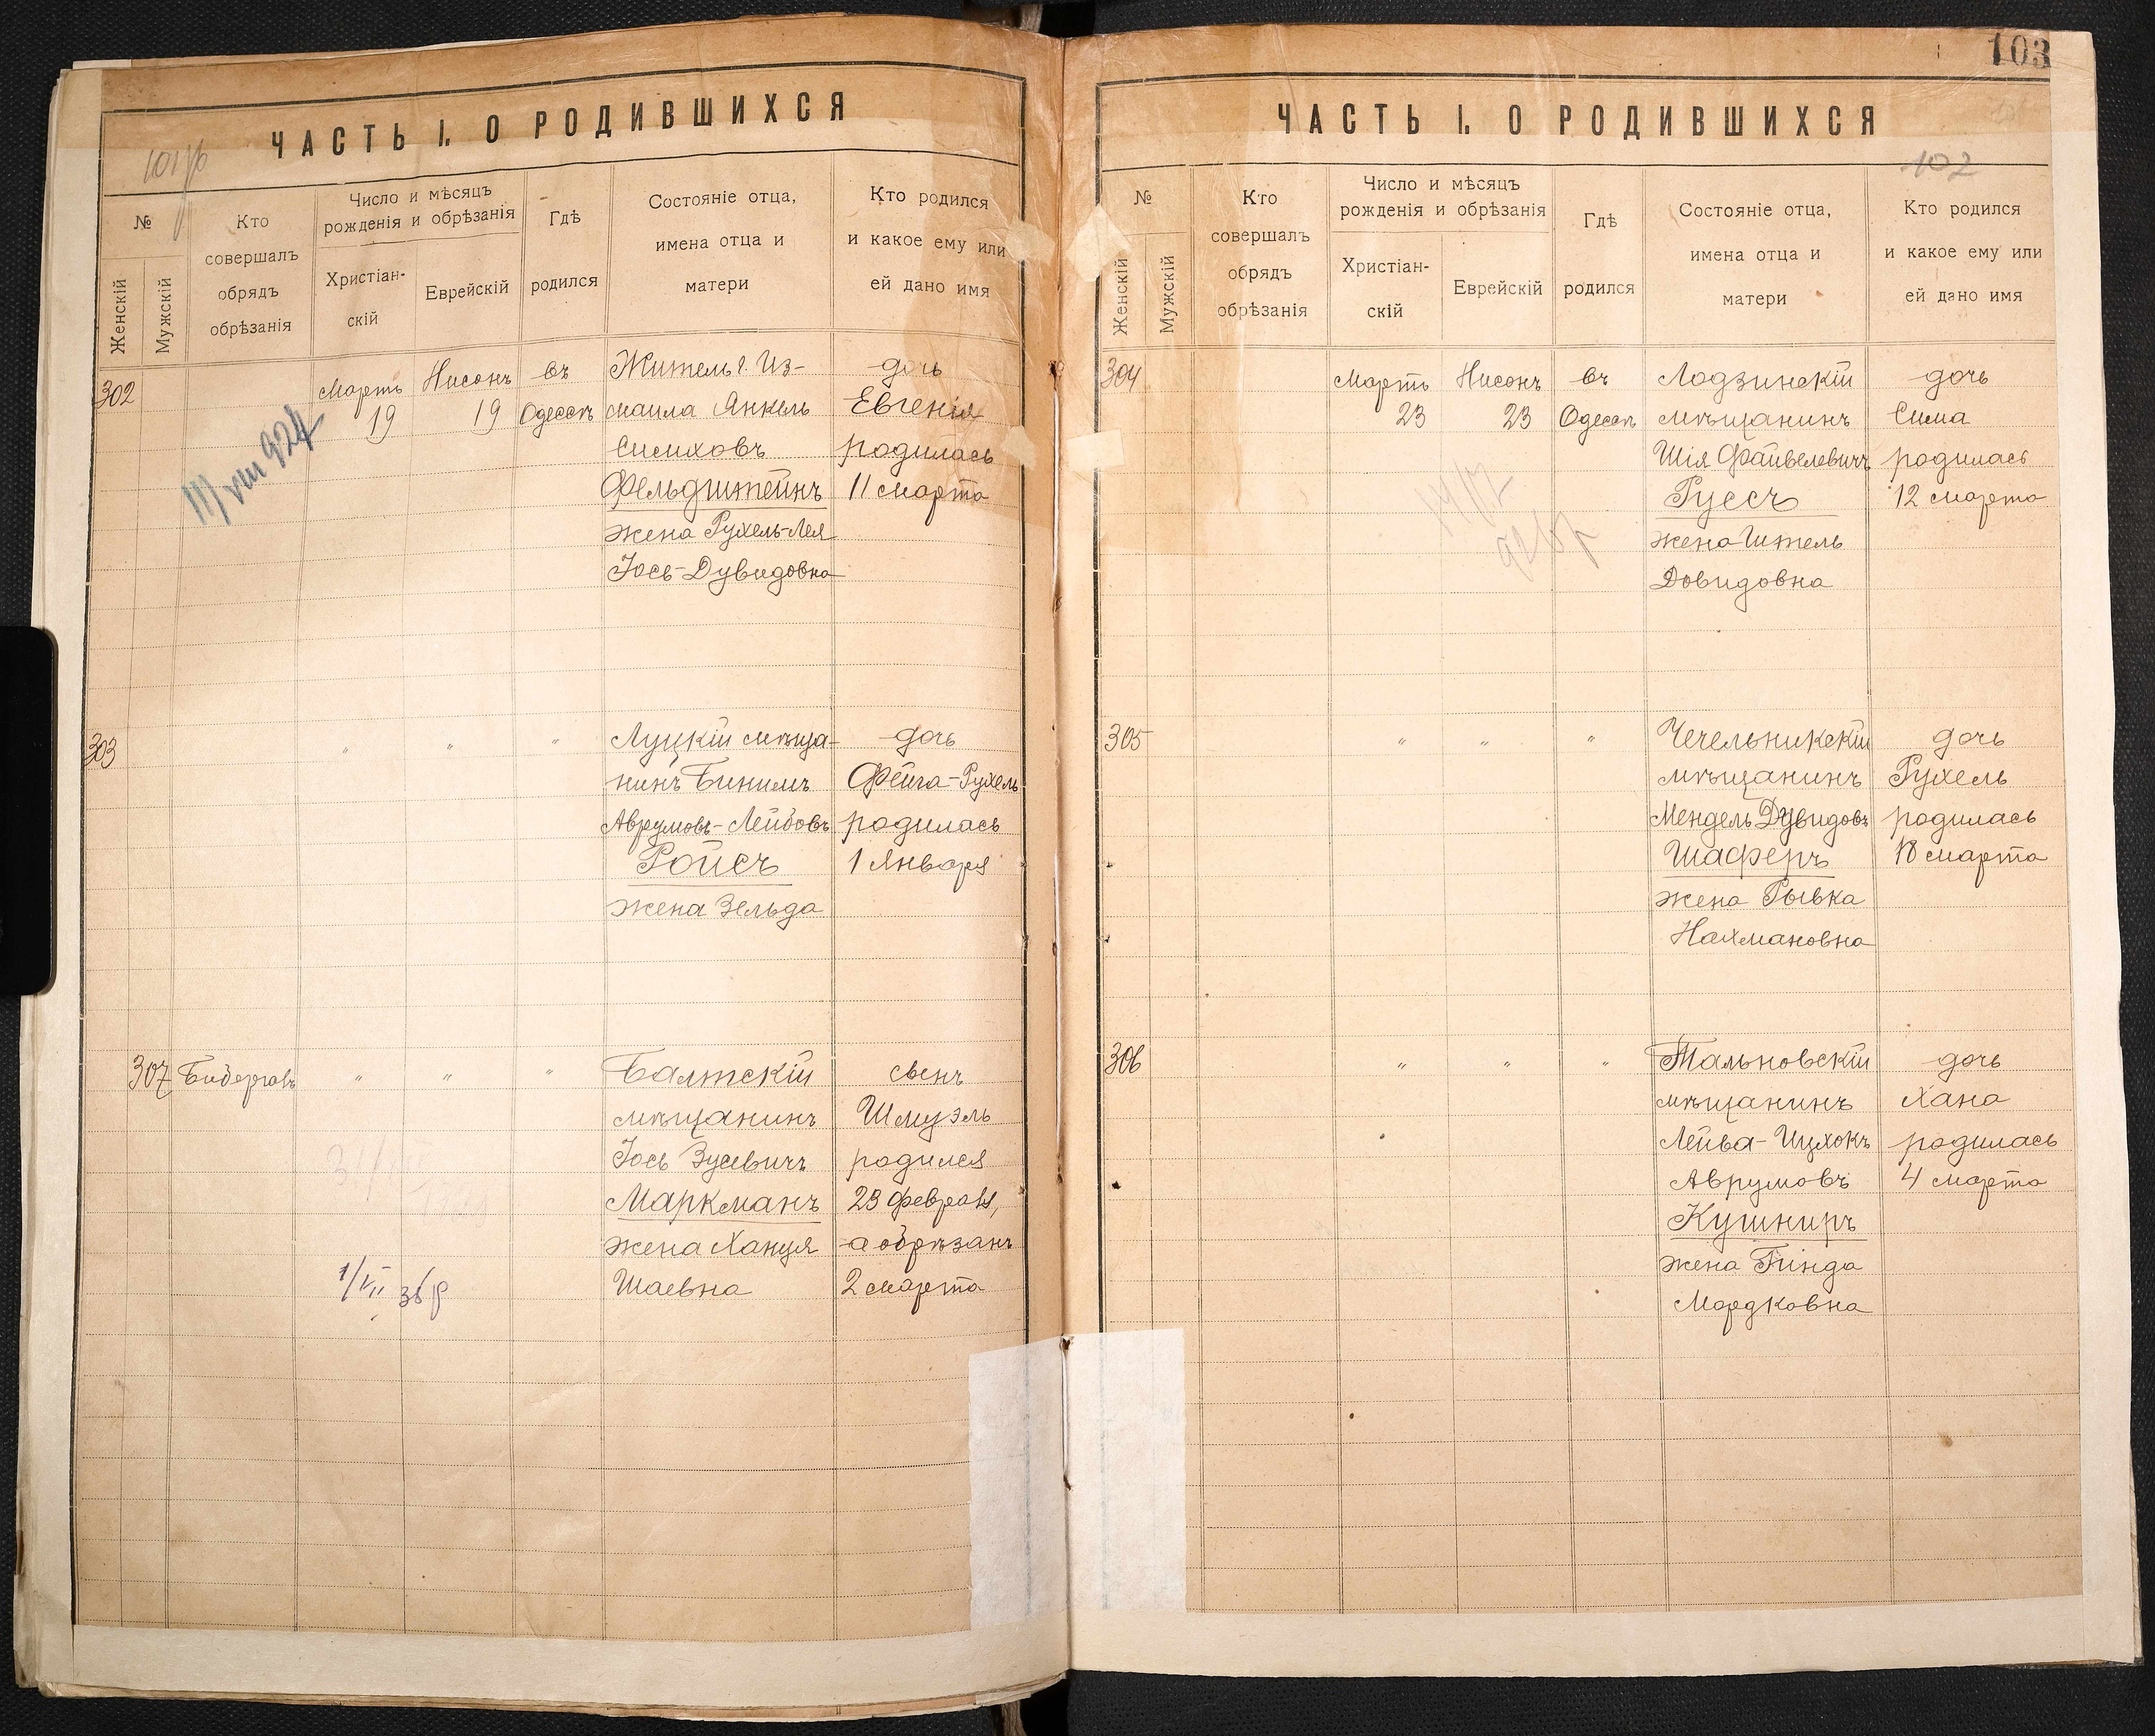 ЧАСТЬ I. О РОДИВШИХСЯ
№
Женскій
Мужскій
Кто
совершалъ
обрядъ
обрѣзанія
Число и мѣсяцъ
рожденія и обрѣзанія
Христіан-
скій
Еврейскій
Гдѣ
родился
Состояніе отца,
имена отца и
матери
Кто родился
и какое ему или
ей дано имя
302
Мартъ
19
Нисонъ
19
въ
Одессѣ
Житель г. Из-
маила Янкель
Симховъ
Фельдштейнъ
жена Рухель-Лея
Іось-Дувидовна
дочь
Евгенія
родилась
11 марта
303
" " "
Луцкій мѣща-
нинъ Бинимъ
Аврумовъ-Лейбовъ
Ройсъ
жена Зельда
дочь
Фейга-Рухель
родилась
1 Января
307
" " "
Балтскій
мѣщанинъ
Іось Зусевичъ
Маркманъ
жена Ханця
Шаевна
сынъ
Шмуэль
родился
23 февраля,
а обрѣзанъ
2 марта
103
ЧАСТЬ I. О РОДИВШИХСЯ
102
№
Женскій
Мужскій
Кто
совершалъ
обрядъ
обрѣзанія
Число и мѣсяцъ
рожденія и обрѣзанія
Христіан-
скій
Еврейскій
Гдѣ
родился
Состояніе отца,
имена отца и
матери
Кто родился
и какое ему или
ей дано имя
304
Мартъ
23
Нисонъ
23
въ
Одессѣ
Лодзинскій
мѣщанинъ
Шія Файвелевичъ
Руссъ
жена Итель
Довидовна
дочь
Сима
родилась
12 марта
305
" " "
Чечельникскій
мѣщанинъ
Мендель Дувидовъ
Шаферъ
жена Рывка
Нахмановна
дочь
Рухель
родилась
18 марта
306
" " "
Тальновскій
мѣщанинъ
Лейва-Ицхокъ
Аврумовъ
Кушниръ
жена Гинда
Мордковна
дочь
Хана
родилась
4 марта